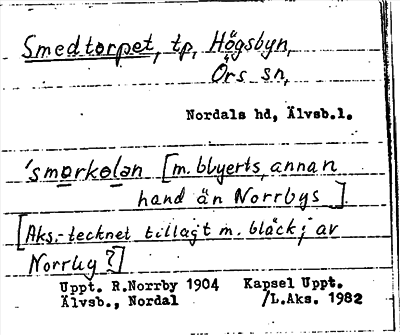 Smedtorpet, tp, Högsbyn,
Örs sn,
Nordals hd, Älvsb.l.
'smɒrkolən [m. blyerts, annan
hand än Norrbys]
[Aks.-tecknet tillagt m. bläck; av
Norrby?]
Uppt. R.Norrby 1904 Kapsel Uppt.
Älvsb., Nordal /L.Aks. 1982